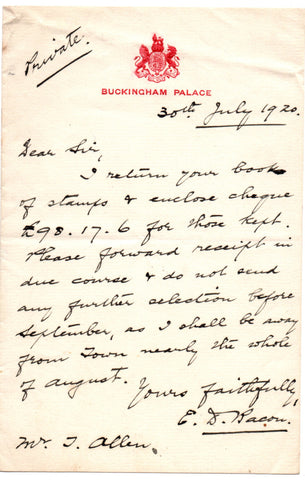 Private.
BUCKINGHAM PALACE
30th July 1920.
Dear Sir,
I return your book
of stamps & enclose cheque
£98.17.6 for those kept.
Please forward receipt in
due course & do not send
any further selection before
September, as I shall be away
from Town nearly the whole
of August.
Yours faithfully,
E. D. Bacon.
Mr. J. Allen.